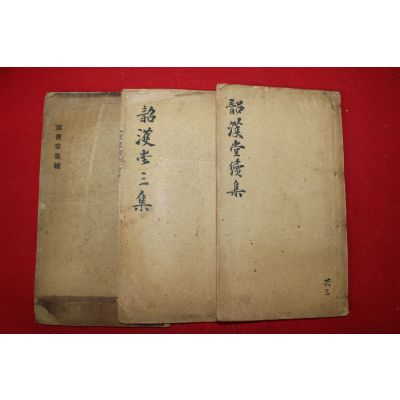 韶濩堂續集
共三
韶濩堂三集
韶濩堂集續